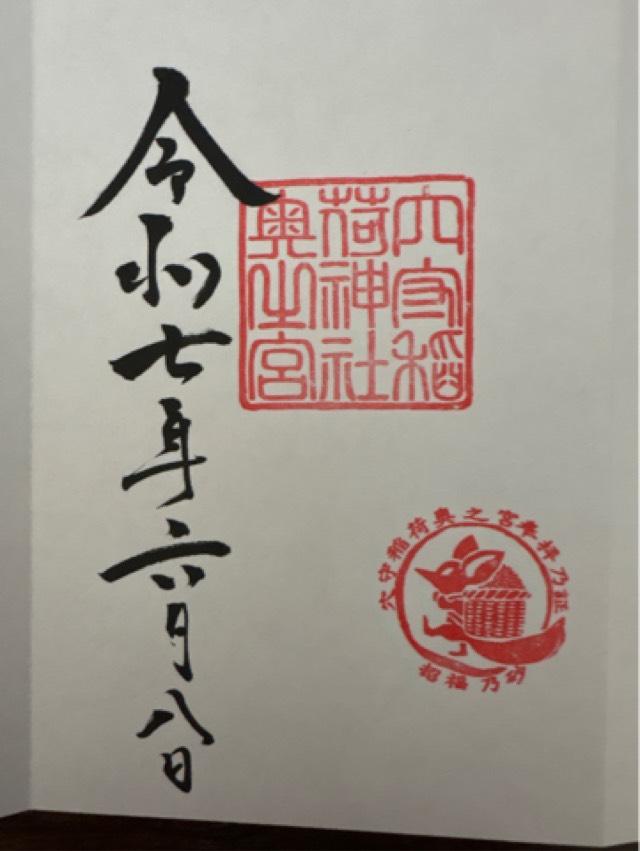 令和七年六月八日
穴守稲
荷神社
奥之宮
穴守稲荷奥之宮奉拝乃証
招福乃砂